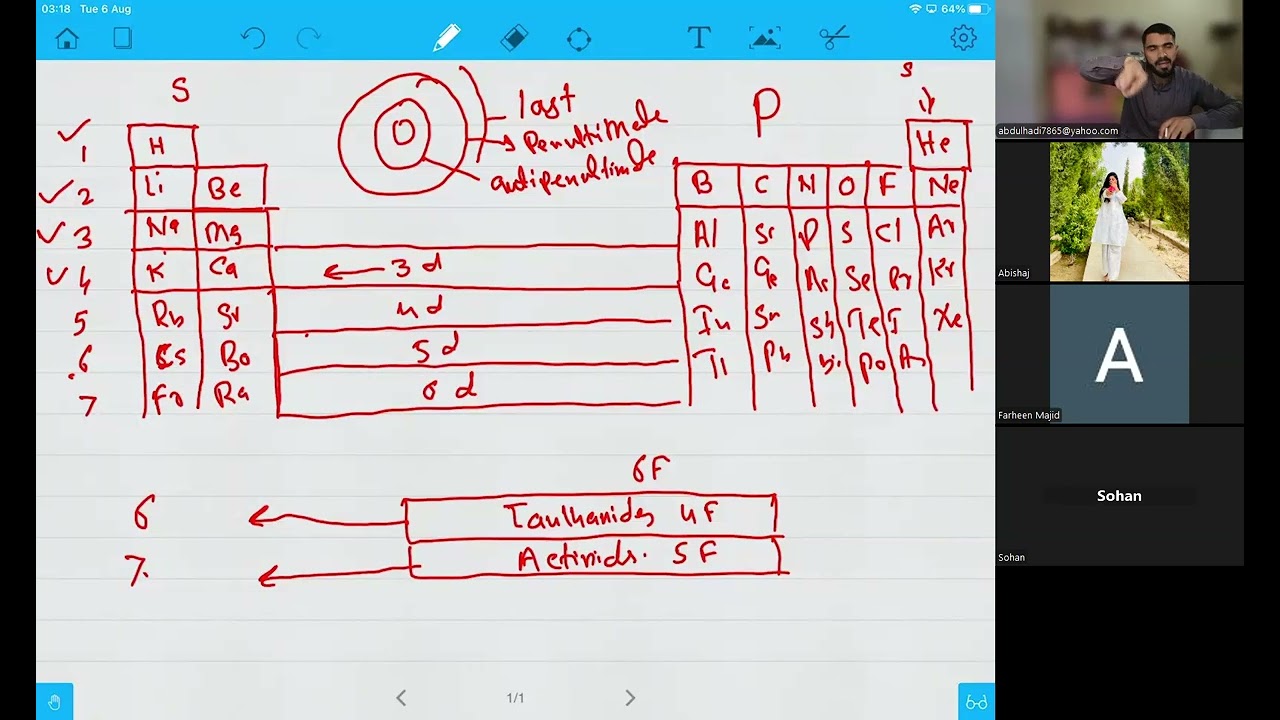 03:18 Tue 6 Aug 64%
T
S P s
last
Penultimate
antipenultimate
1 H He
2 Li Be B C N O F Ne
3 Na Mg Al Si P S Cl Ar
4 K Ca 3 d Ge Se Br Kr
5 Rb Sr 4 d In Sn Sb Te I Xe
6 Cs Ba 5 d Tl Pb Bi Po As
7 Fr Ra 6 d
6F
6 4F
7 Actinids. 5 F
1/1
abdulhadi7865@yahoo.com
Abishaj
A
Farheen Majid
Sohan
Sohan